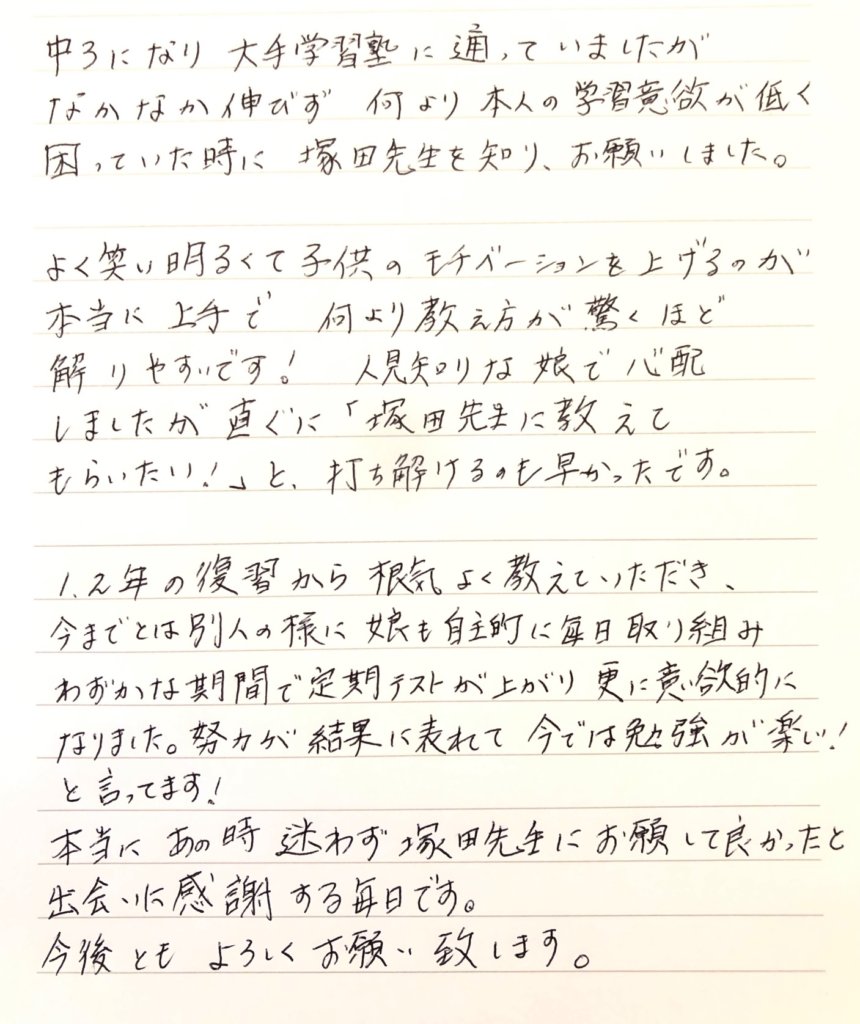 中3になり 大手学習塾に通っていましたが
なかなか伸びず 何より本人の学習意欲が低く
困っていた時に 塚田先生を知り、お願いしました。
よく笑い明るくて子供のモチベーションを上げるのが
本当に上手で 何より教え方が驚くほど
解りやすいです! 人見知りな娘で心配
しましたが直ぐに「塚田先生に教えて
もらいたい!」と、打ち解けるのも早かったです。
1.2年の復習から根気よく教えていただき、
今までとは別人の様に娘も自主的に毎日取り組み
わずかな期間で定期テストが上がり更に意欲的に
なりました。努力が結果に表れて今では勉強が楽しい!
と言ってます!
本当にあの時迷わず塚田先生にお願いして良かったと
出会いに感謝する毎日です。
今後とも よろしくお願い致します。